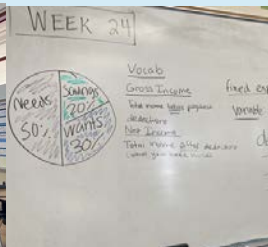 WEEK 24
Needs
50%
Savings
20%
Wants
30%
Vocab
Gross Income
Total income before
deductions
Net Income
Total income after deductions
fixed
variable